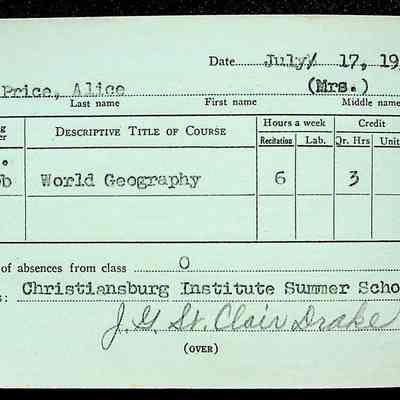 Date July 17, 19
Price, Alice (Mrs.)
Last name First name Middle name
g
er
DESCRIPTIVE TITLE OF COURSE
Hours a week Credit
Recitation Lab. Qr. Hrs Unit
b World Geography 6 3
of absences from class 0
s: Christiansburg Institute Summer Scho
J. G. St. Clair Drake
(OVER)